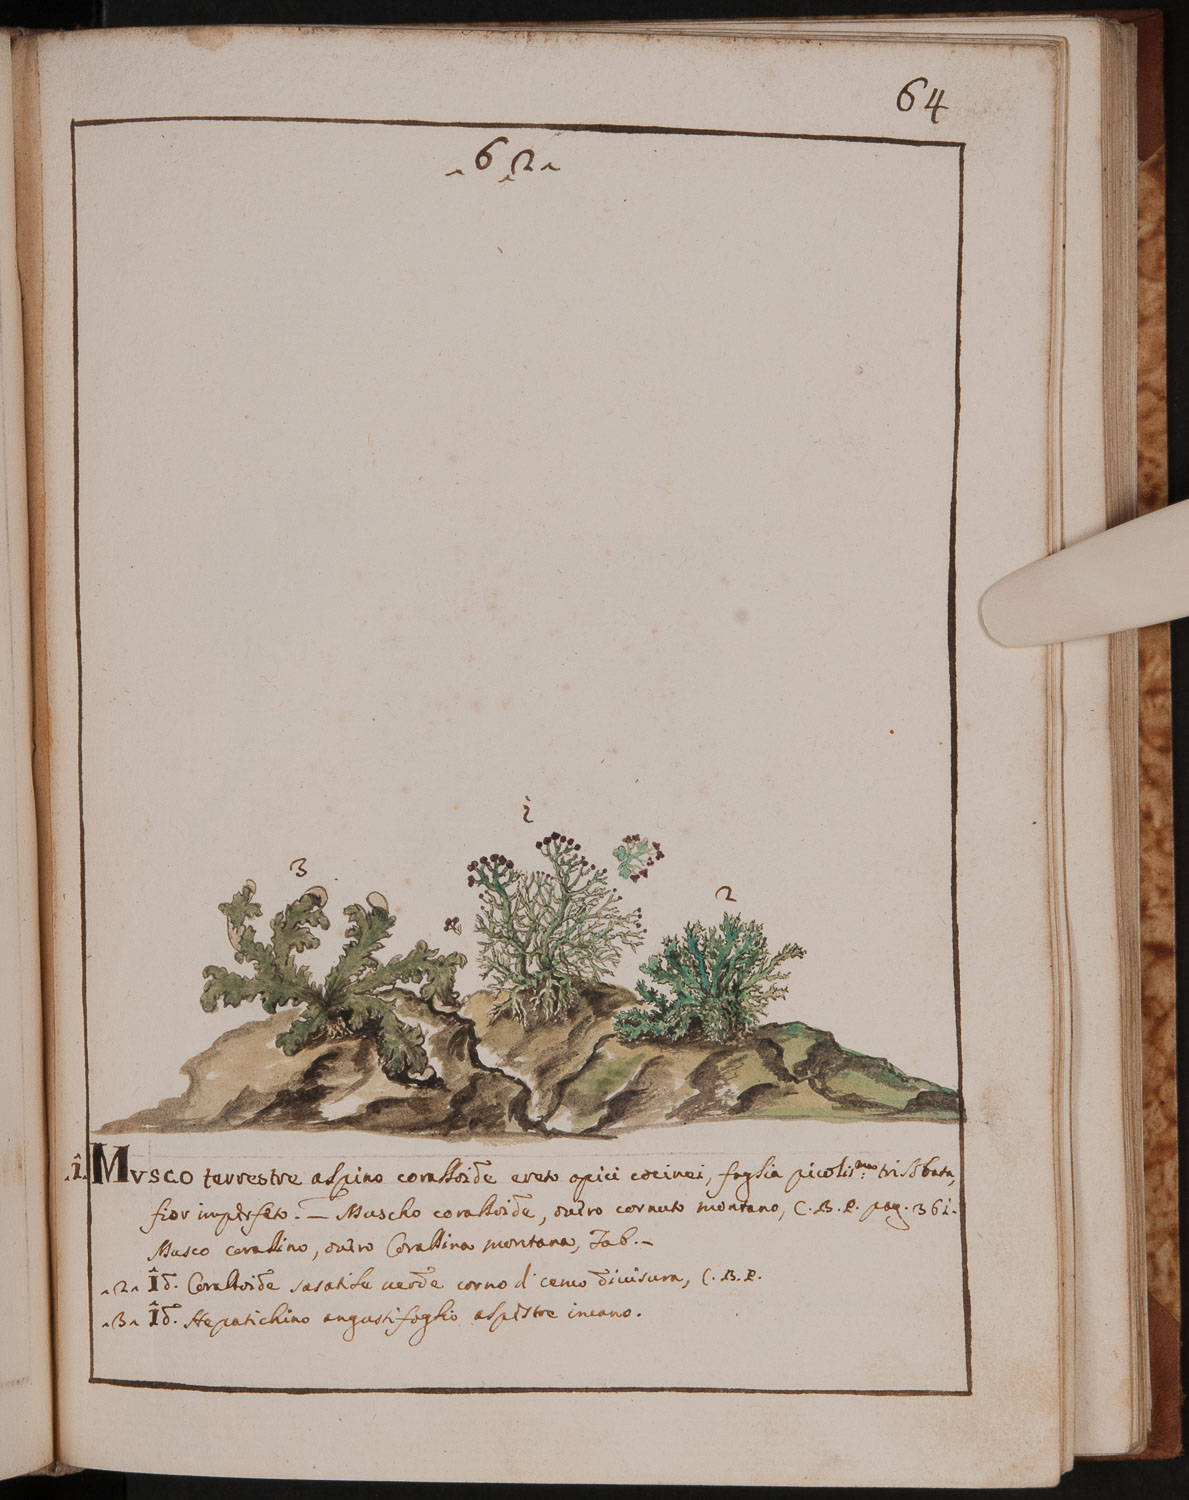 64
62
1
3
2
1. Mvsco terrestre alpino coralloide ereto apici cocinei, foglia picolis.mo trilobata,
fior imperfeto. — Muscho coralloide, ouero cornuto montano, C. B. P. pag. 361.
Musco coralino, ouero Corallina montana, Tab. —
2 Id. Coralloide saxatile uerde corno d' ceruo diuisura, C. B. P.
3 Id. Hepatichino angustifoglio alpestre incano.